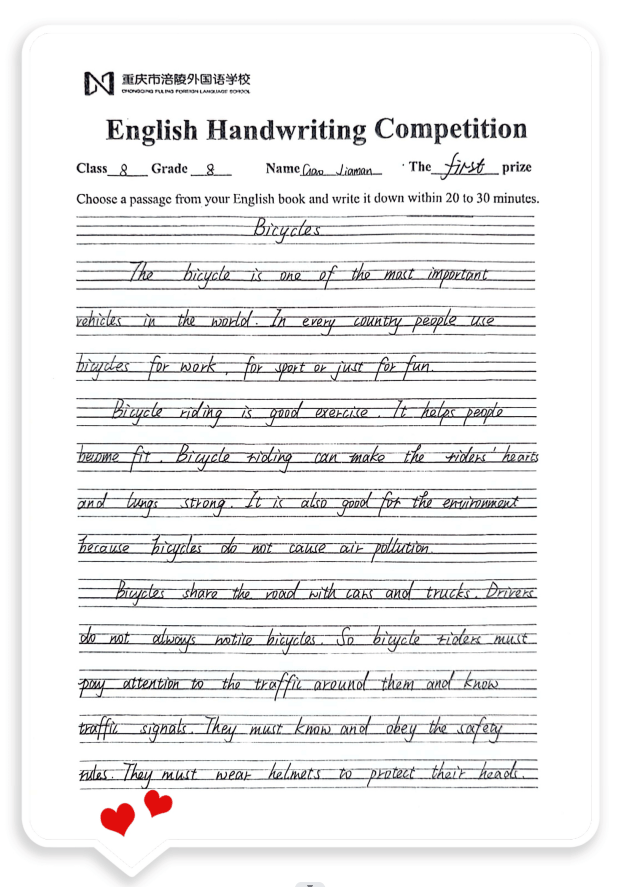 重庆市涪陵外国语学校
CHONGQING FULING FOREIGN LANGUAGE SCHOOL
English Handwriting Competition
Class 8 Grade 8 Name Jiaman The first prize
Choose a passage from your English book and write it down within 20 to 30 minutes.
Bicycles
The bicycle is one of the most important
vehicles in the world. In every country people use
bicycles for work, for sport or just for fun.
Bicycle riding is good exercise. It helps people
become fit. Bicycle riding can make the riders' hearts
and lungs strong. It is also good for the environment
because bicycles do not cause air pollution.
Bicycles share the road with cars and trucks. Drivers
do not always notice bicycles. So bicycle riders must
pay attention to the traffic around them and know
traffic signals. They must know and obey the safety
rules. They must wear helmets to protect their heads.